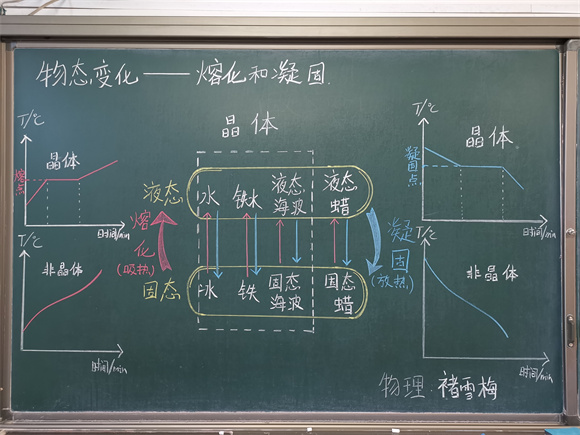 物态变化——熔化和凝固
晶体
T/℃
晶体
熔点
时间/min
T/℃
非晶体
时间/min
液态
熔化
(吸热)
固态
水 铁水 液态海波 液态蜡
冰 铁 固态海波 固态蜡
凝固
(放热)
T/℃
晶体
凝固点
时间/min
T/℃
非晶体
时间/min
物理:褚雪梅